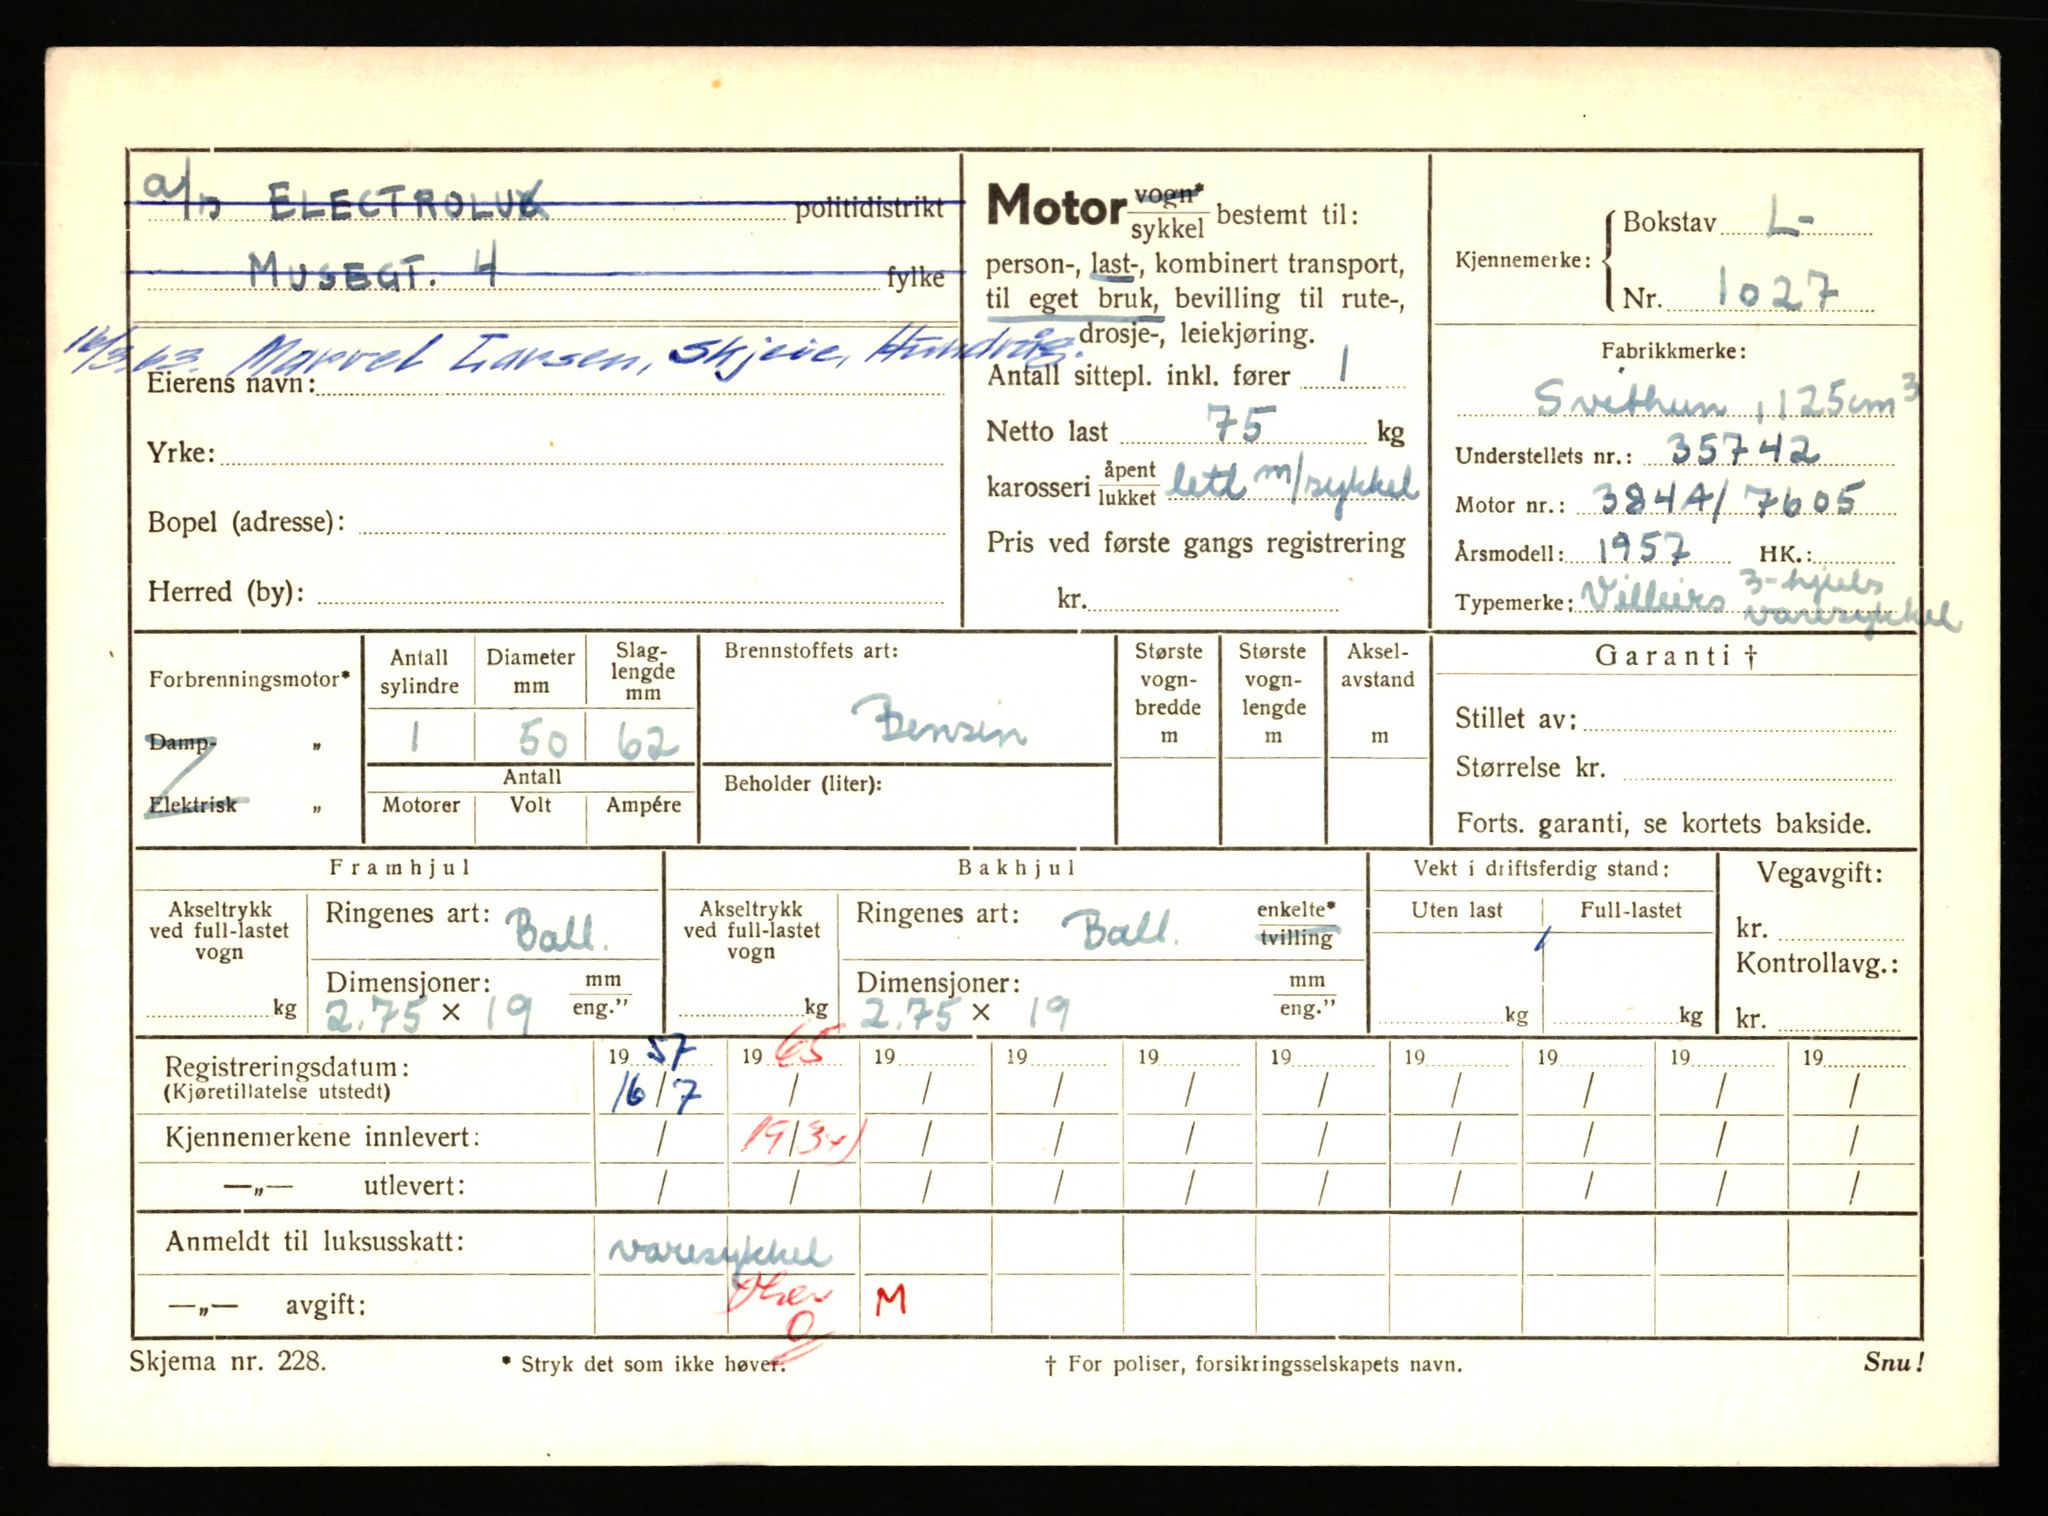 a/s ELECTROLUX politidistrikt
MUSEGT. 4 fylke
16/3.63. Marvel Larsen, Skjeie, Hundvåg.
Eierens navn:
Yrke:
Bopel (adresse):
Herred (by):
Motor vogn* / sykkel bestemt til:
person-, last-, kombinert transport,
til eget bruk, bevilling til rute-,
drosje-, leiekjøring.
Antall sittepl. inkl. fører 1
Netto last 75 kg
karosseri åpent / lukket lett m/sykkel
Pris ved første gangs registrering
kr.
Kjennemerke: Bokstav L-
Nr. 1027
Fabrikkmerke:
Svithun, 125cm³
Understellets nr.: 35742
Motor nr.: 384A/7605
Årsmodell: 1957 HK.:
Typemerke: Villiers 3-hjuls
varesykkel
Forbrenningsmotor*
Damp- „
Elektrisk „
Antall sylindre Diameter mm Slag-lengde mm
1 50 62
Antall
Motorer Volt Ampére
Brennstoffets art:
Bensin
Beholder (liter):
Største vogn-bredde m
Største vogn-lengde m
Aksel-avstand m
Garanti †
Stillet av:
Størrelse kr.
Forts. garanti, se kortets bakside.
Framhjul
Akseltrykk ved full-lastet vogn
kg
Ringenes art: Ball.
Dimensjoner: mm / eng."
2.75 × 19
Bakhjul
Akseltrykk ved full-lastet vogn
kg
Ringenes art: Ball. enkelte* / tvilling
Dimensjoner: mm / eng."
2.75 × 19
Vekt i driftsferdig stand:
Uten last Full-lastet
kg kg
Vegavgift:
kr.
Kontrollavg.:
kr.
Registreringsdatum: 1957 1965 19 19 19 19 19 19 19 19
(Kjøretillatelse utstedt) 16/7 / / / / / / / / /
Kjennemerkene innlevert: / 19/3 / / / / / / / /
—„— utlevert: / / / / / / / / / /
Anmeldt til luksusskatt: varesykkel
—„— avgift: M
Skjema nr. 228. * Stryk det som ikke høver. † For poliser, forsikringsselskapets navn. Snu!